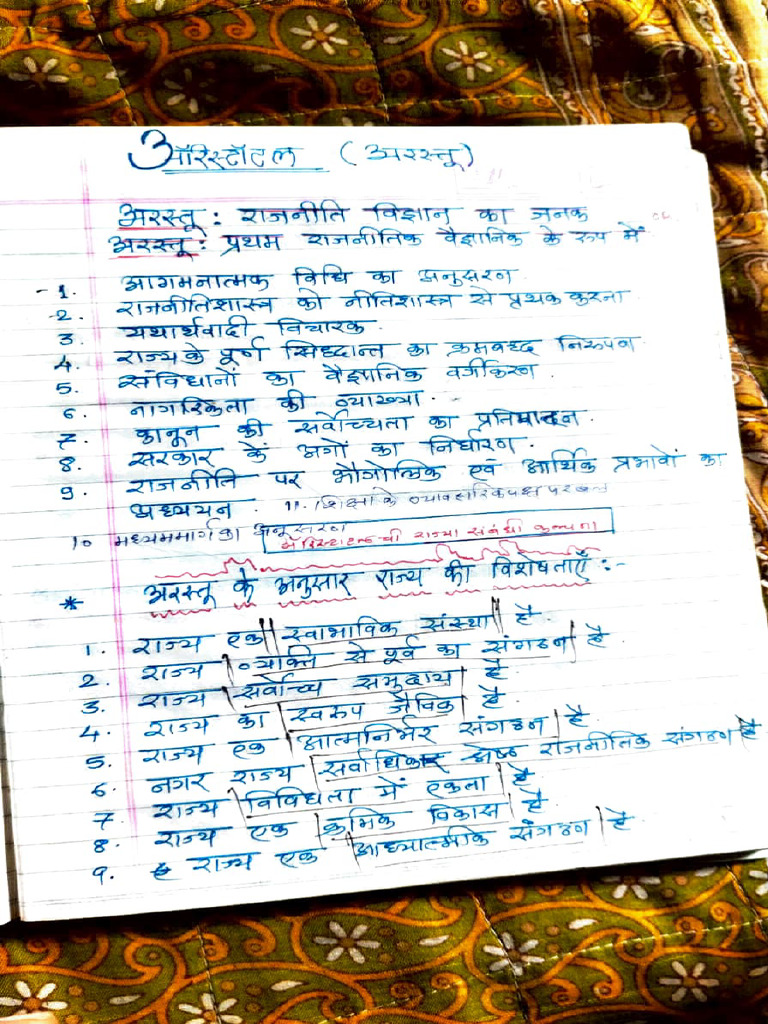 ऑरिस्टॉटल (अरस्तू)
अरस्तू : राजनीति विज्ञान का जनक
अरस्तू : प्रथम राजनीतिक वैज्ञानिक के रूप में
1. आगमनात्मक विधि का अनुसरण.
2. राजनीतिशास्त्र को नीतिशास्त्र से पृथक करना
3. यथार्थवादी विचारक.
4. राज्य के पूर्ण सिध्दान्त का क्रमबध्द निरुपण
5. संविधानों का वैज्ञानिक वर्गीकरण.
6. नागरिकता की व्याख्या.
7. कानून की सर्वोच्चता का प्रतिपादन.
8. सरकार के अंगों का निर्धारण.
9. राजनीति पर भौगोलिक एवं आर्थिक प्रभावों का
अध्ययन. 11. शिक्षा के व्यावहारिक पक्ष पर बल
10 मध्यममार्ग का अनुसरण
की राज्य संबंधी कल्पना
* अरस्तू के अनुसार राज्य की विशेषताएँ :-
1. राज्य एक स्वाभाविक संस्था है.
2. राज्य व्यक्ति से पूर्व का संगठन है.
3. राज्य सर्वोच्च समुदाय है.
4. राज्य का स्वरुप जैविक है.
5. राज्य एक आत्मनिर्भर संगठन है.
6. नगर राज्य सर्वाधिक श्रेष्ठ राजनीतिक संगठन है
7. राज्य विविधता में एकता है
8. राज्य एक क्रमिक विकास है.
9. राज्य एक आध्यात्मिक संगठन है